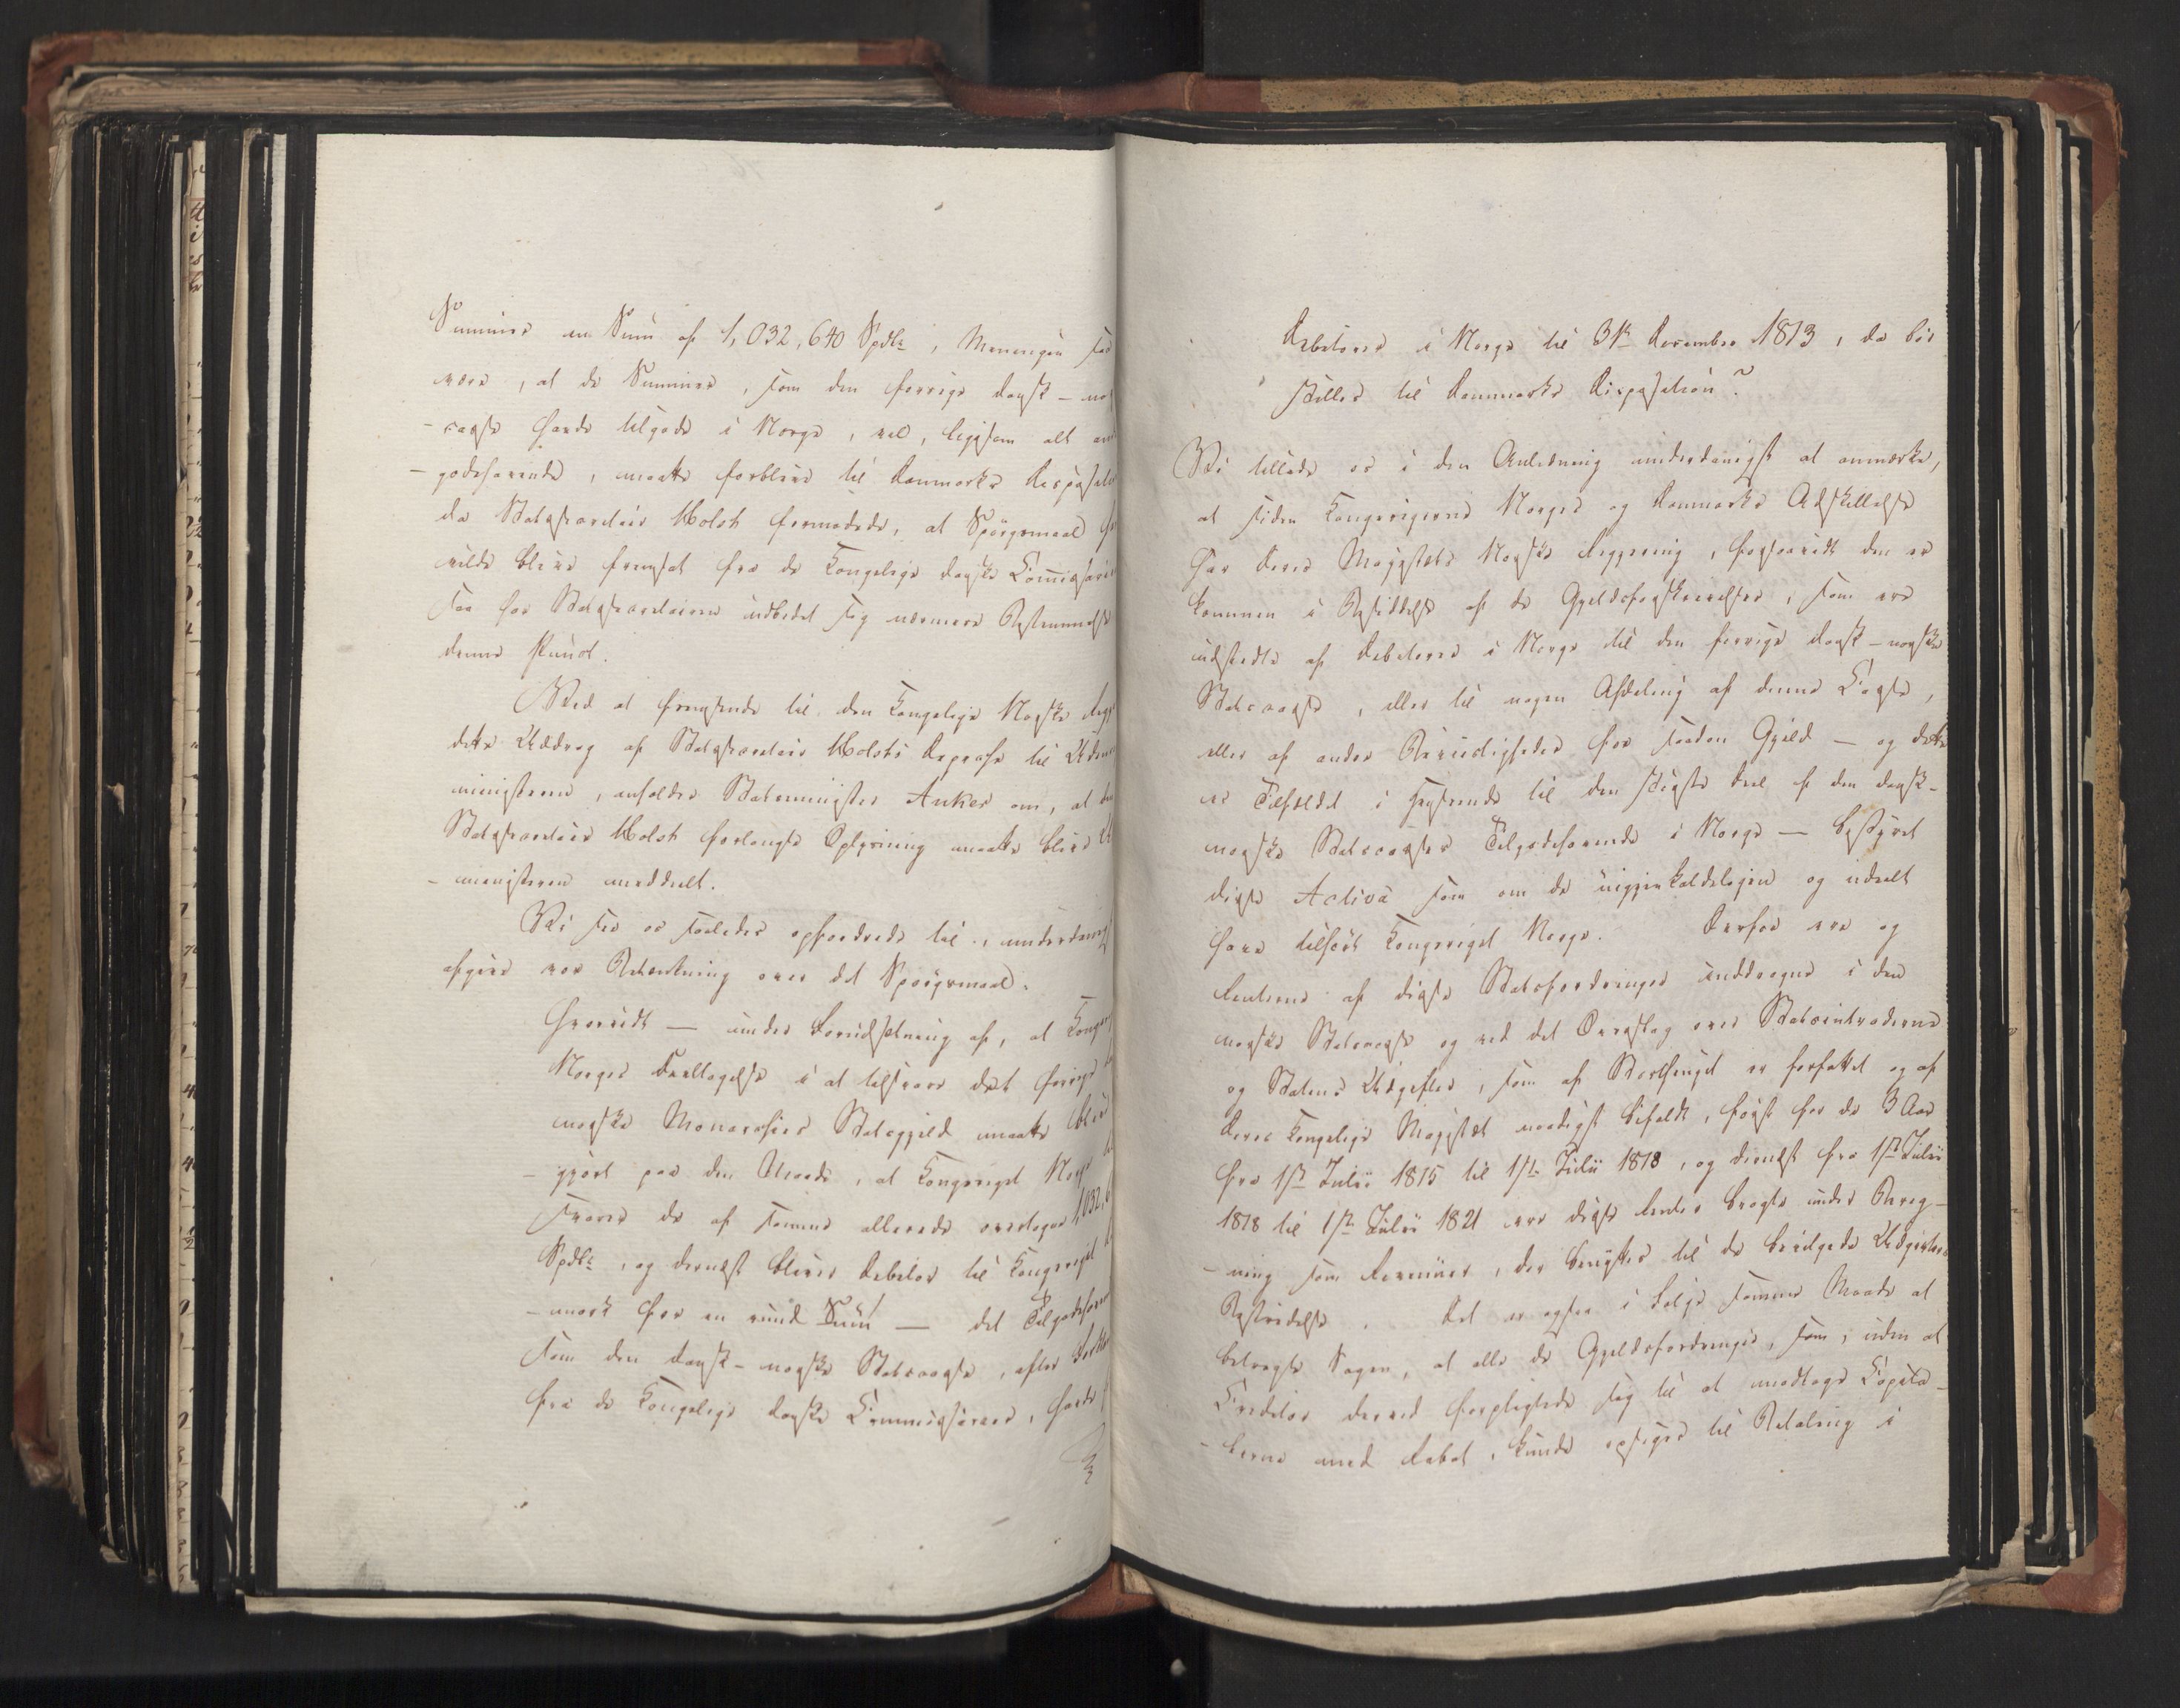 Summer en Sum af 1,032,640 Spdlr, Meningen skal
være, at de Summer, som den forrige dansk-nor
-casse havde tilgode i Norge, vel, ligesom alt
-godehavende, maatte forblive til Danmarks Disposition
da Statssecretair Holst formodede, at Spörgsmaal
vilde blive fremsat fra de Kongelige danske Commissarier
saa har Statssecretairen udbedet sig nærmere Bestemmelse
denne Punct.
Ved at fremsende til den Kongelige Norske
dette Uddrag af Statssecretair Holsts Depeche til
ministeren, anholder Statsminister Anker om, at den
Statssecretair Holst forlangte Oplysning maatte blive
-ministeren meddeelt.
Vi see os saaledes opfordrede til, underdanigst
afgive vor Betænkning over det Spörgsmaal:
Hvorvidt — under Forudsætning af, at Konger
Norges Deeltagelse i at tilsvare det forrige
norske Monarchies Statsgjeld maatte blive
-gjort paa den Maade, at Kongeriget Norge
svarer de af samme allerede overtagne 1,032,6
Spdlr, og dernæst bliver Debitor til Kongeriget
-mark for en rund Sum — det Tilgodehavende
som den dansk-norske Statscasse, efter
fra de Kongelige danske Commissarier, havde
Debitorer i Norge til 31te December 1813, da bör
stilles til Danmarks Disposition?
Vi tillade os i den Anledning underdanigst at anmærke,
at siden Kongerigerne Norges og Danmarks Adskillelse
har Deres Majestæts Norske Regjering, forsaavidt den er
kommen i Besiddelse af de Gjeldsforskrivelser, som ere
udstedte af Debitorer i Norge til den forrige dansk-norske
Statscasse, eller til nogen Afdeling af denne Casse,
eller af andre Beviisligheder for saadan Gjeld — og dette
er Tilfældet i Henseende til den störste Deel af den dansk-
norske Statscasses Tilgodehavende i Norge — bestyret
disse Activa som om de uigjenkaldeligen og udeelt
have tilhört Kongeriget Norge. Derfor ere og
Renterne af disse Statsfordringer inddragne i den
norske Statscasse og ved det Overslag over Statsindtægterne
og Statens Udgifter, som af Storthinget er forfattet og af
Deres Kongelige Majestæt naadigst bifaldt, först for de 3 Aar
fra 1ste Julii 1815 til 1ste Julii 1818, og dernæst fra 1ste Julii
1818 til 1ste Julii 1821 ere disse Renter bragte under Bereg-
-ning som Revenüer, der benyttes til de bevilgede Udgifters
Bestridelse. Det er ogsaa i Fölge samme Maade at
betragte Sagen, at alle de Gjeldsfordringer, som, uden at
Creditor derved forpligtede sig til at modtage Capita-
-lerne med Rabat, kunde opsiges til Betaling i